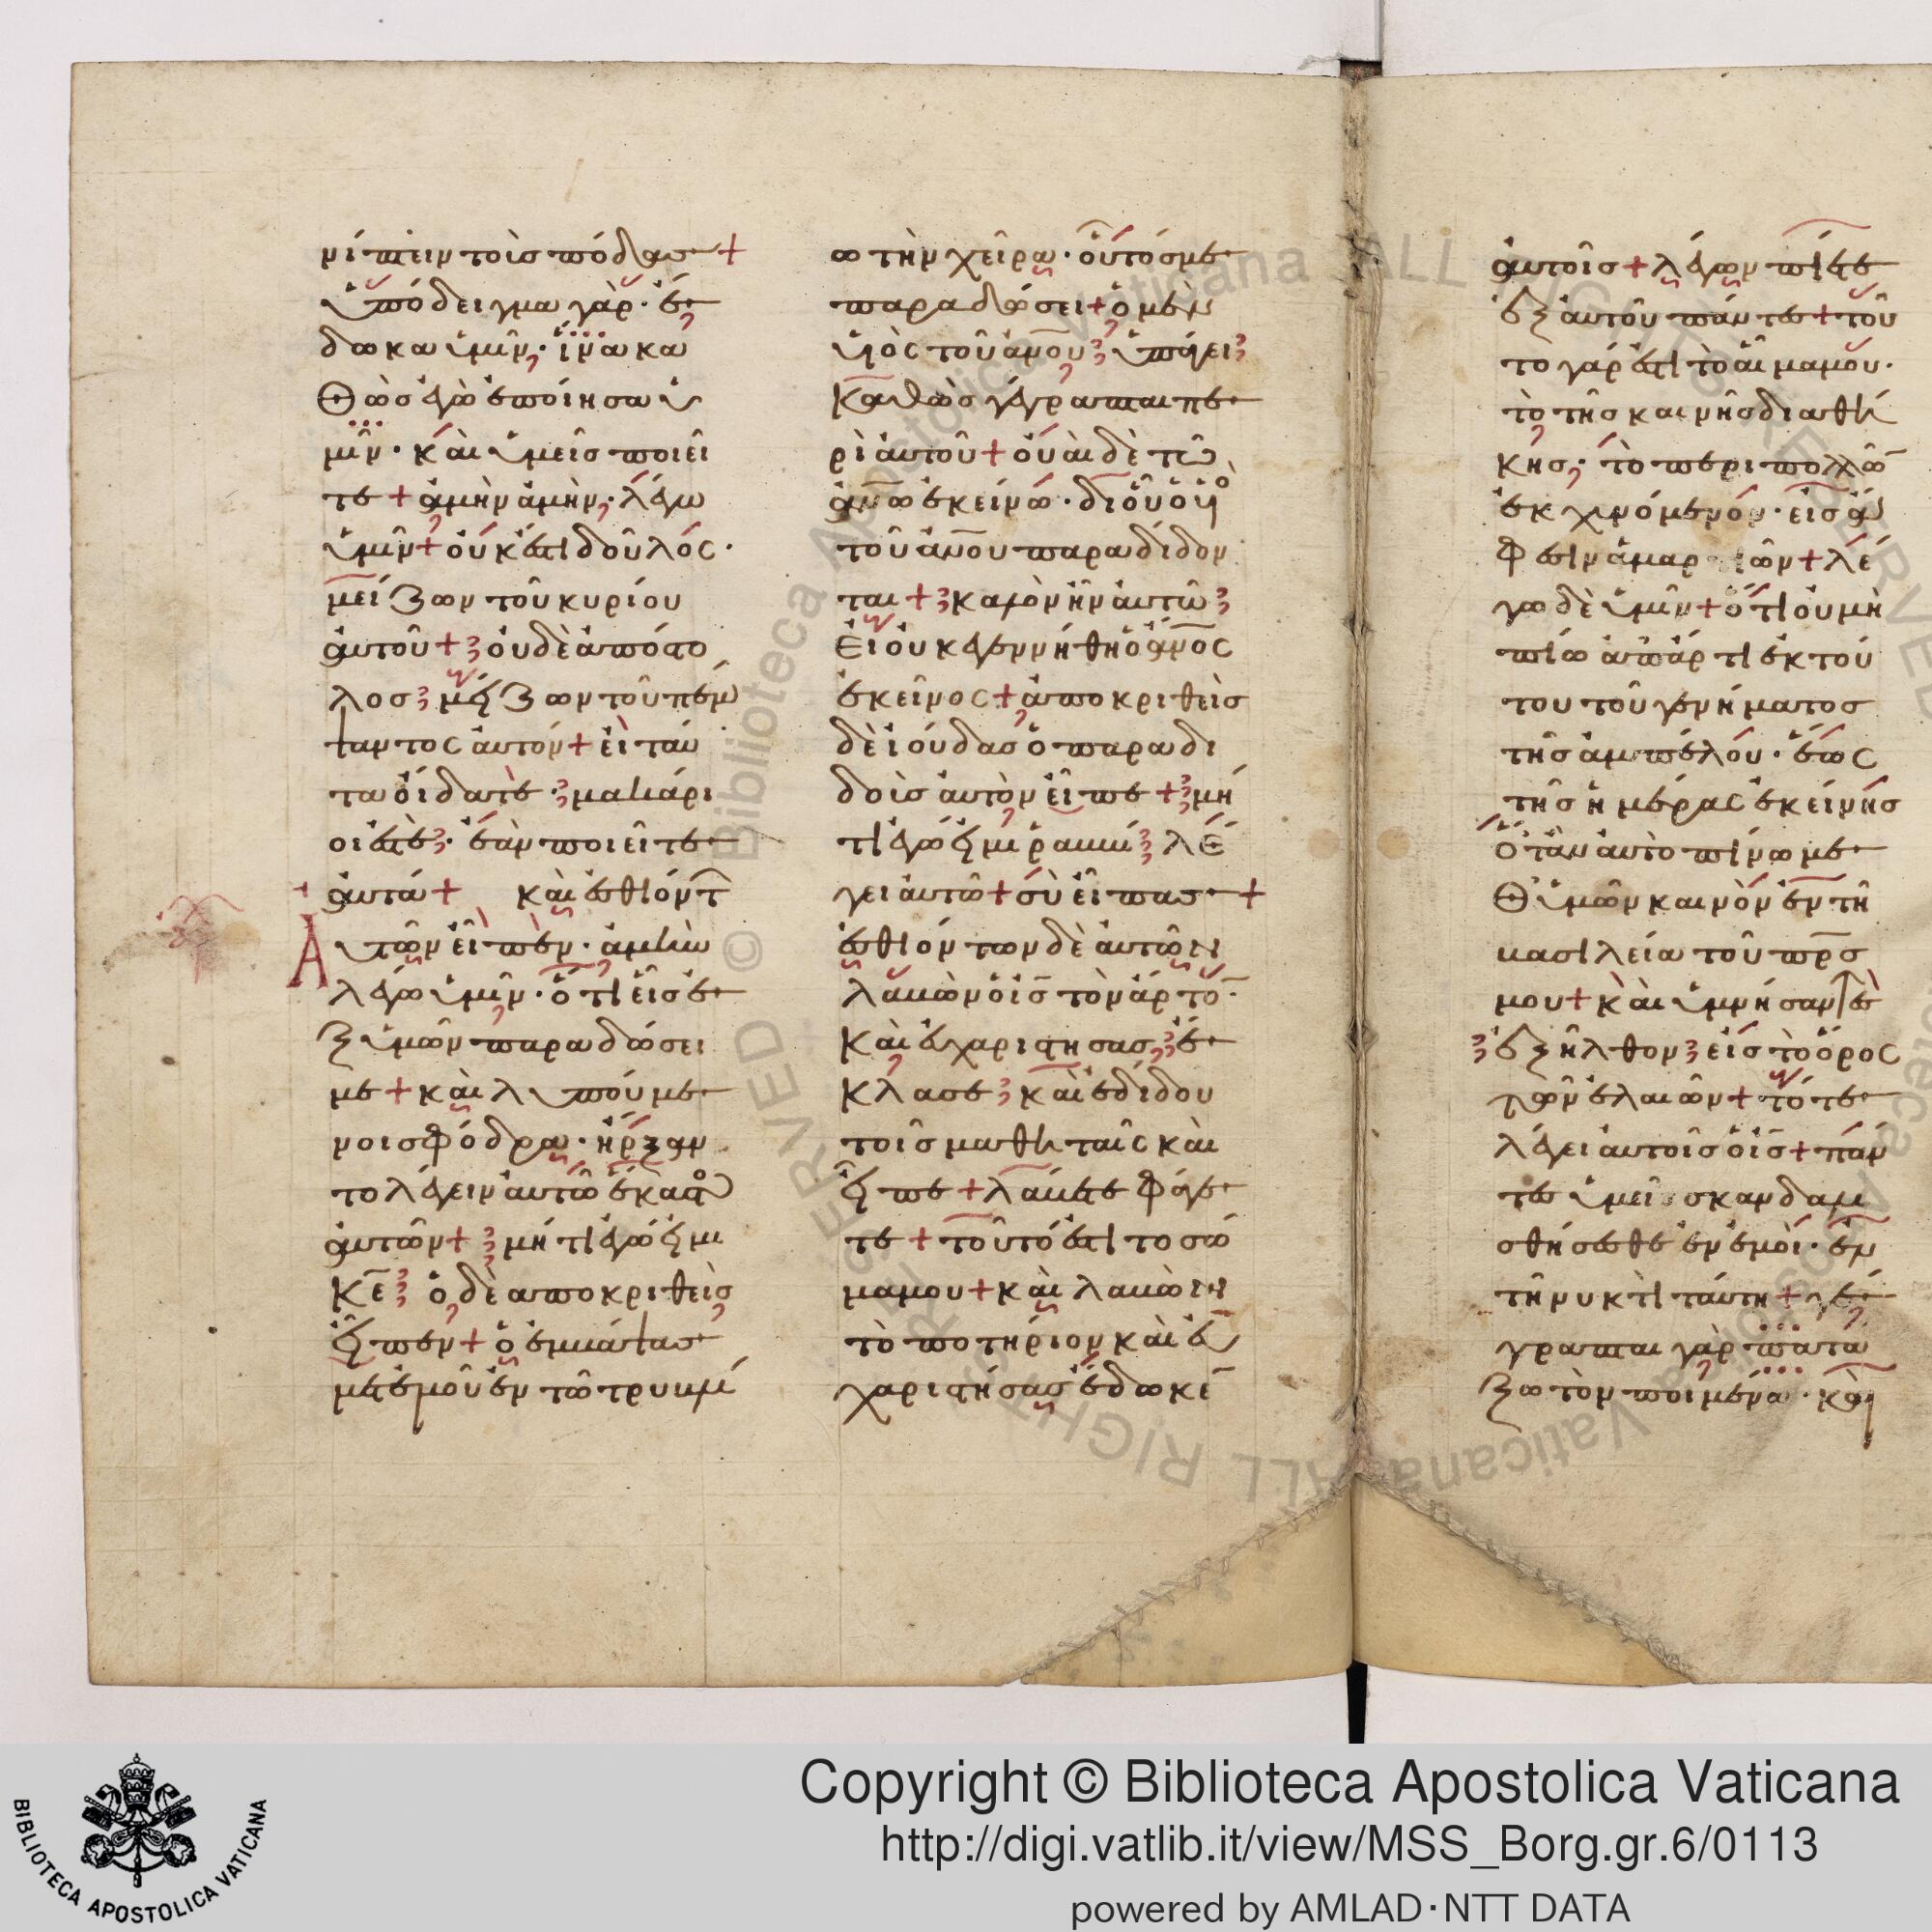 νίπτειν τοὺσ πόδασ +
ὑπόδειγμα γὰρ · ἔ
δωκα ὑμῖν · ἵνα κα
θὼσ ἐγὼ ἐποίησα ὑ
μῖν · καὶ ὑμεῖσ ποιεῖ
τε + ἀμὴν ἀμὴν · λέγω
ὑμῖν + οὐκ ἔστι δοῦλοσ ·
μείζων τοῦ κυρίου
αὐτοῦ + οὐδὲ ἀπόστο
λοσ μείζων τοῦ πέμ
ψαντοσ αὐτόν + εἰ ταῦ
τα οἴδατε · μακάρι
οι ἐστέ · ἐὰν ποιεῖτε
αὐτά + καὶ ἐσθιόντ
Αὐτῶν εἶπεν · ἀμὴν
λέγω ὑμῖν · ὅτι εἷσ ἐ
ξ ὑμῶν παραδώσει
με + καὶ λυπούμε
νοι σφόδρα · ἤρξαν
το λέγειν αὐτῶ ἕκαστοσ
αὐτῶν + μήτι ἐγώ εἰμι
κε ὁ δὲ αποκριθεὶσ
εἶπεν + ὁ ἐμβάψασ
μετ ἐμοῦ ἐν τῶ τρυβλί
ω τὴν χεῖρα · οὗτόσ με
παραδώσει + ὁ μὲν
υἱὸσ τοῦ ανου ὑπάγει
Καθὼσ γέγραπται πε
ρὶ αὐτοῦ + οὐαὶ δὲ τῶ
ανω ἐκείνω · δι οὗ ὁ υἱὸσ
τοῦ ανου παραδίδο
ται + καλὸν ἦν αὐτῶ
Εἰ οὐκ ἐγεννήθη ὁ ανοσ
ἐκεῖνοσ + ἀποκριθεὶσ
δὲ ἰούδασ ὁ παραδι
δοὺσ αὐτὸν εἶπε + μή
τι ἐγώ εἰμι ῥαββί λέ
γει αὐτῶ + σὺ εἶπασ +
ἐσθιόντων δὲ αὐτῶν
λαβὼν ὁ ισ τὸν ἄρτο ·
Καὶ εὐχαριστήσασ ἔ
Κλασε καὶ ἐδίδου
τοῖσ μαθηταῖσ καὶ
εἶπε + λάβετε φάγε
τε + τοῦτό ἐστι το σῶ
μα μου + καὶ λαβὼν
τὸ ποτήριον καὶ εὐ
χαριστήσασ ἔδωκε
αὐτοῖσ + λέγων πίετε
ἐξ αὐτοῦ πάντεσ + τοῦ
το γάρ ἐστι τὸ αἷμα μου ·
τὸ τῆσ καινῆσ διαθή
κησ · τὸ περι πολλῶ
ἐκχυνόμενον · εἰσ ἄ
φεσιν ἁμαρτιῶν + λέ
γω δὲ ὑμῖν + ὅτι οὐ μὴ
πίω ἀπάρτι ἐκ τού
του τοῦ γενήματοσ
τῆσ ἀμπέλου · ἕωσ
τῆσ ἡμέρασ ἐκείνησ
ὅταν αὐτο πίνω με
θ ὑμῶν καινὸν ἐν τῆ
βασιλεία τοῦ πρσ
μου + καὶ ὑμνήσαντεσ
ἐξῆλθον εἰσ τὸ ὄροσ
τῶν ἐλαιῶν + τότε
λέγει αὐτοῖσ ὁ ισ + πάν
τεσ ὑμεῖσ σκανδαλι
σθήσεσθε ἐν ἐμοὶ · ἐν
τῆ νυκτὶ ταύτη + γέ
γραπται γὰρ πατά
ξω τὸν ποιμένα · καὶ
Copyright © Biblioteca Apostolica Vaticana
http://digi.vatlib.it/view/MSS_Borg.gr.6/0113
powered by AMLAD·NTT DATA
BIBLIOTECA APOSTOLICA VATICANA